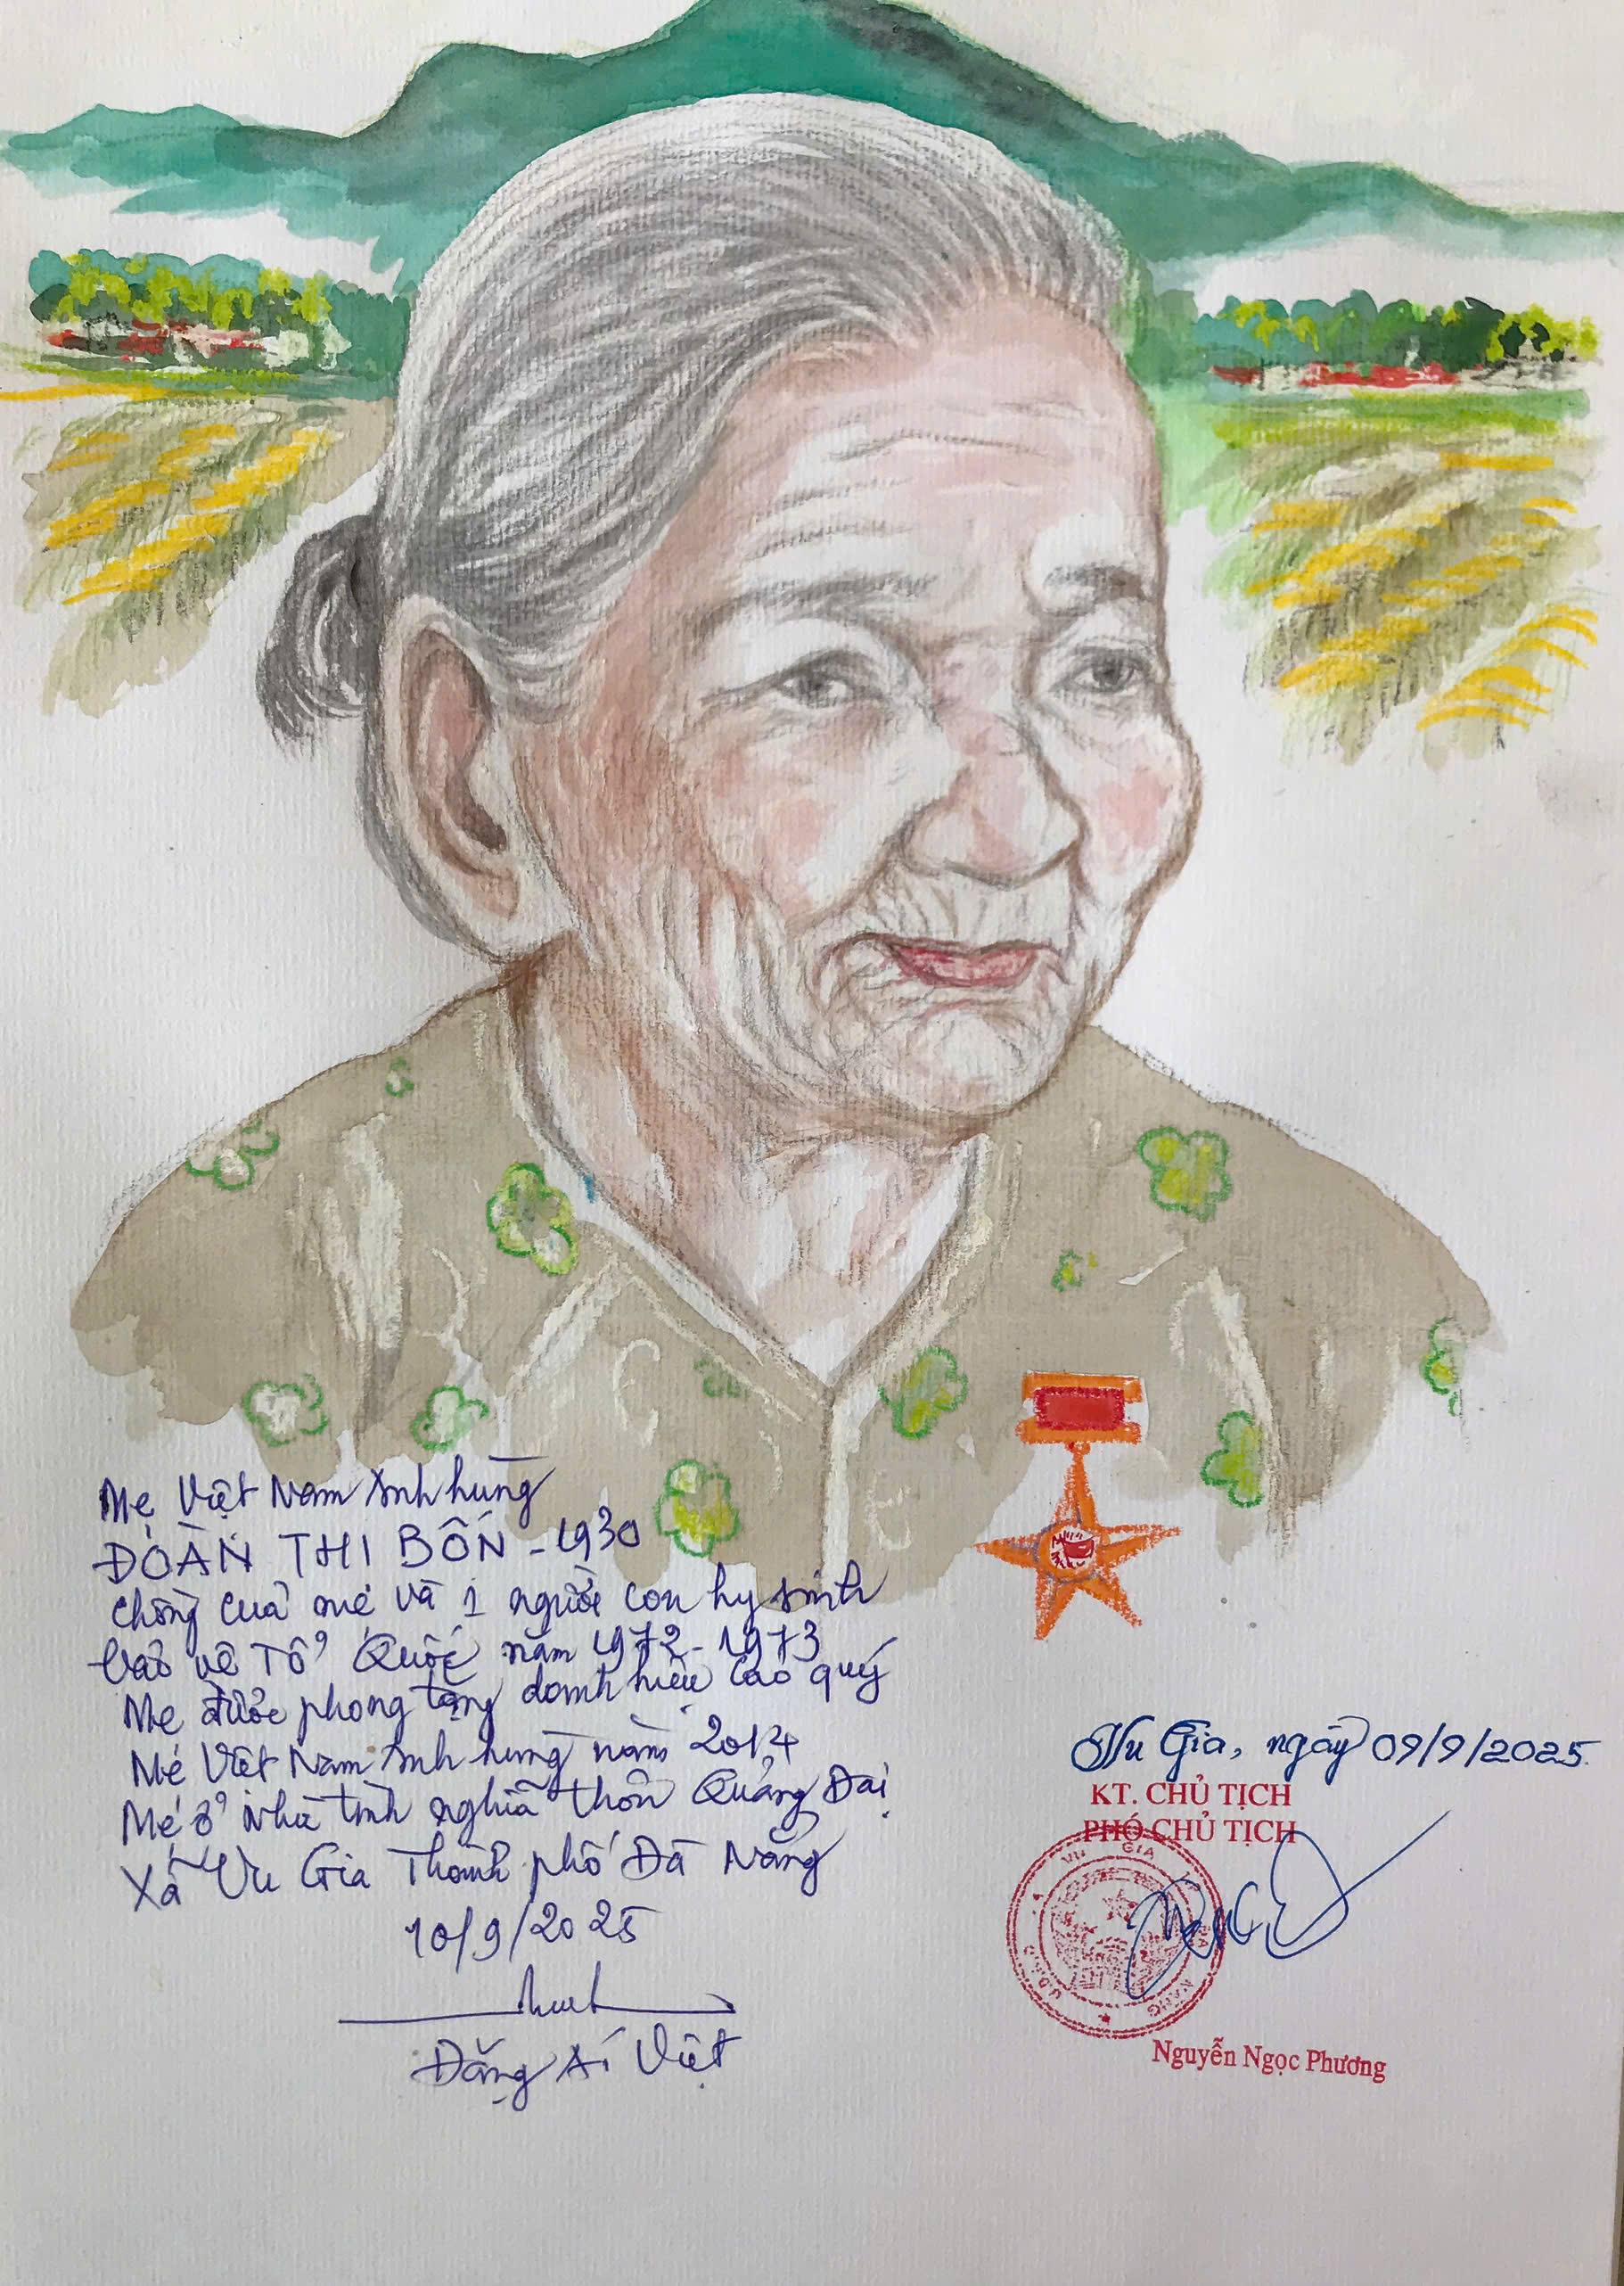 Mẹ Việt Nam Anh hùng
ĐOÀN THỊ BỐN - 1930
Chồng của mẹ và 1 người con hy sinh
bảo vệ Tổ Quốc năm 1972 - 1973
Mẹ được phong tặng danh hiệu cao quý
Mẹ Việt Nam Anh hùng năm 2014
Mẹ ở nhà tình nghĩa thôn Quảng Đại
Xã Vu Gia Thành phố Đà Nẵng
10/9/2025
Đặng Ái Việt
Vu Gia, ngày 09/9/2025
KT. CHỦ TỊCH
PHÓ CHỦ TỊCH
VU GIA
Nguyễn Ngọc Phương